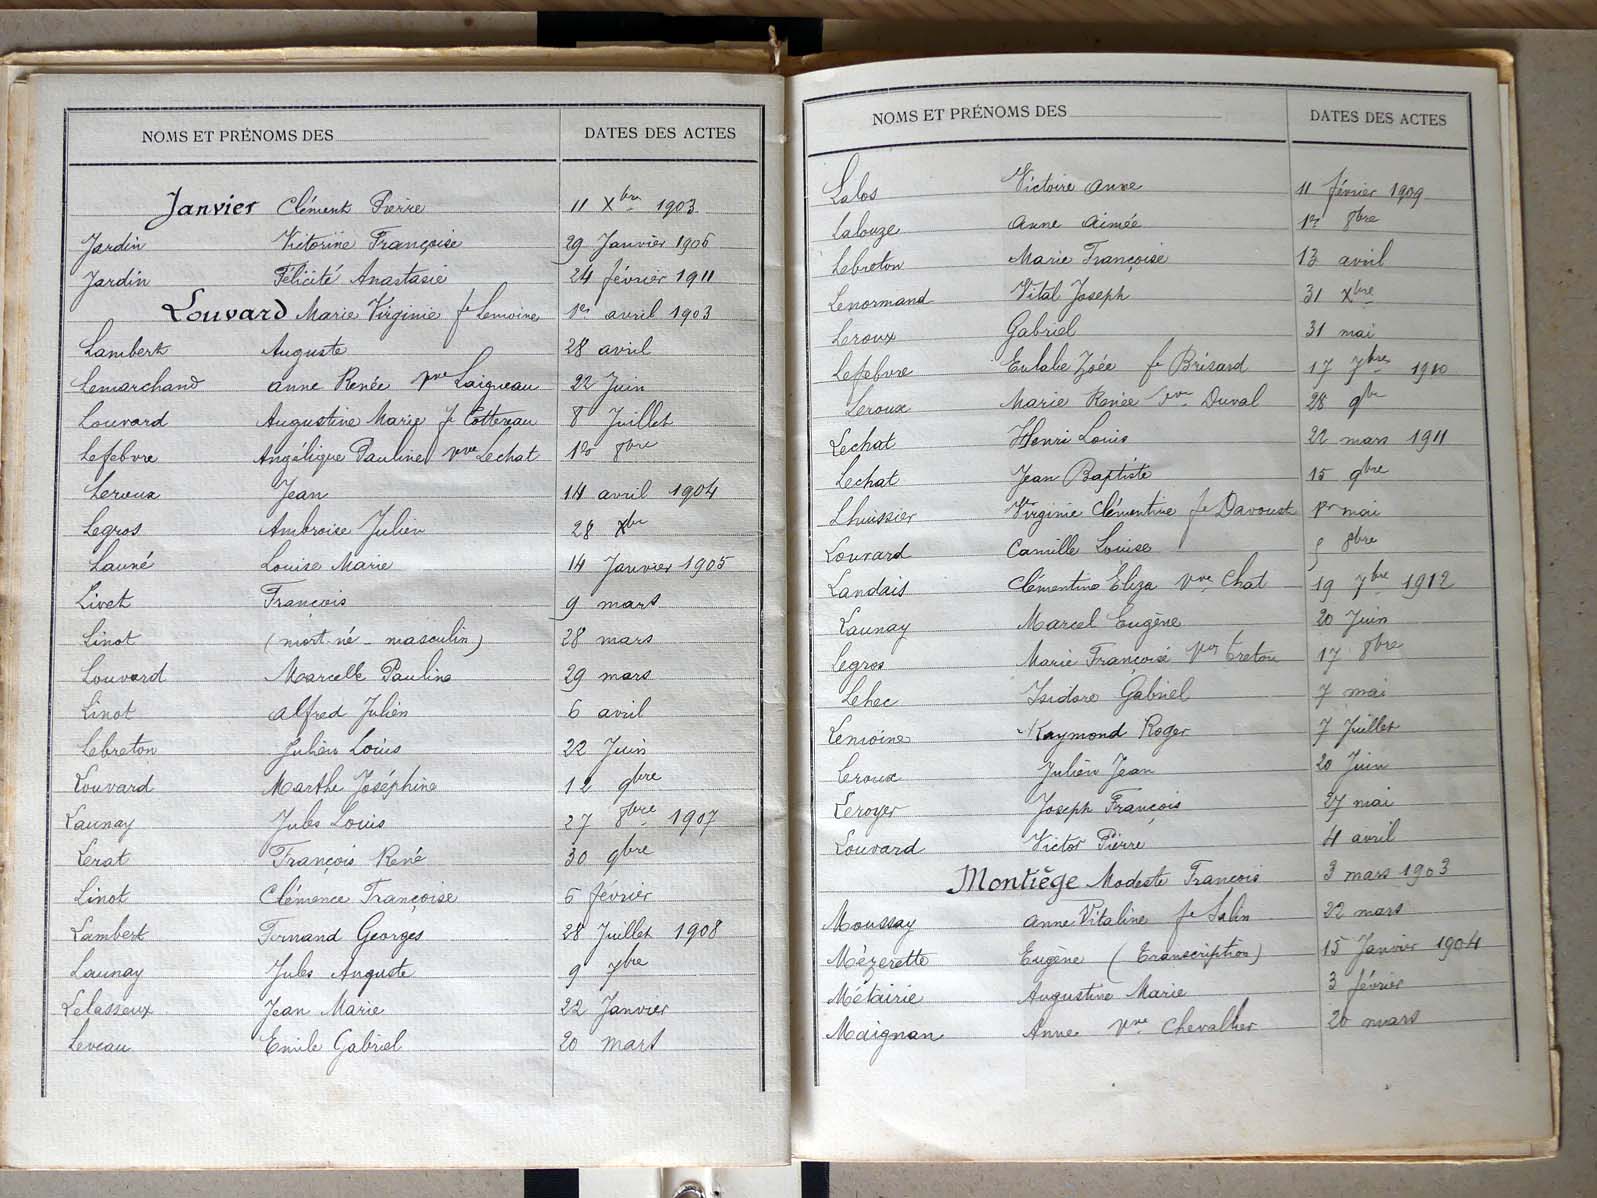 NOMS ET PRÉNOMS DES DATES DES ACTES
Janvier Clément Pierre 11 Xbre 1903
Jardin Victorine Françoise 29 Janvier 1906
Jardin Félicité Anastasie 24 février 1911
Louvard Marie Virginie fe Lemoine 1er avril 1903
Lambert Auguste 28 avril
Lemarchand Anne Renée vve Laigneau 22 Juin
Louvard Augustine Marie fe Cottereau 8 Juillet
Lefebvre Angélique Pauline vve Lechat 1er 8bre
Leroux Jean 14 avril 1904
Legros Ambroise Julien 28 Xbre
Launé Louise Marie 14 Janvier 1905
Livet François 9 mars
Linot (mort-né - masculin) 28 mars
Louvard Marcelle Pauline 29 mars
Linot Alfred Julien 6 avril
Lebreton Julien Louis 22 Juin
Louvard Marthe Joséphine 12 9bre
Launay Jules Louis 27 8bre 1907
Lerat François René 30 9bre
Linot Clémence Françoise 6 février
Lambert Fernand Georges 28 Juillet 1908
Launay Jules Auguste 9 7bre
Lelasseux Jean Marie 22 Janvier
Leveau Emile Gabriel 20 mars
NOMS ET PRÉNOMS DES DATES DES ACTES
Lalos Victoire Anne 11 février 1909
Lalouze Anne Aimée 1er 8bre
Lebreton Marie Françoise 13 avril
Lenormand Vital Joseph 31 Xbre
Leroux Gabriel 31 mai
Lefebvre Eulalie Zoée fe Brisard 17 7bre 1910
Leroux Marie Renée vve Duval 28 9bre
Lechat Henri Louis 22 mars 1911
Lechat Jean Baptiste 15 9bre
Lhuissier Virginie Clémentine fe Davoust 1er mai
Louvard Camille Louise 8bre
Landais Clémentine Eliza vve Chat 19 7bre 1912
Launay Marcel Eugène 20 Juin
Legros Marie Françoise vve Creton 17 8bre
Lehec Isidore Gabriel 7 mai
Lemoine Raymond Roger 7 Juillet
Leroux Julien Jean 20 Juin
Leroyer Joseph François 27 mai
Louvard Victor Pierre 4 avril
Montiège Modeste François 3 mars 1903
Moussay Anne Vitaline fe Salin 22 mars
Mézerette Eugène (Transcription) 15 Janvier 1904
Métairie Augustine Marie 3 février
Maignan Anne vve Chevallier 20 mars